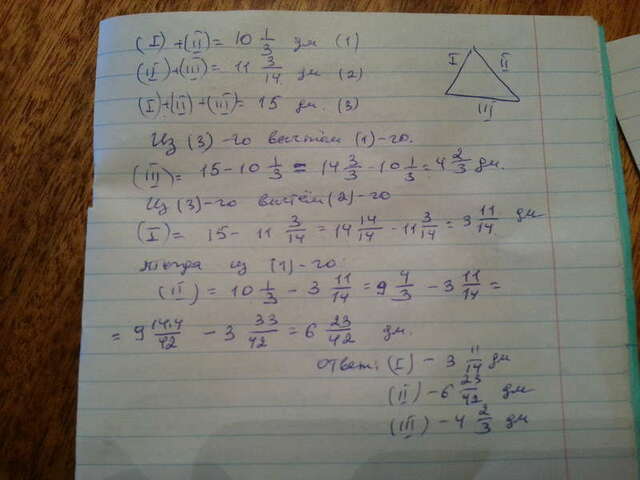 (I) + (II) = 10 1/3 дм (1)
(II) + (III) = 11 3/14 дм (2)
(I) + (II) + (III) = 15 дм. (3)
I II
III
Из (3)-го вычтем (1)-го.
(III) = 15 - 10 1/3 = 14 3/3 - 10 1/3 = 4 2/3 дм.
Из (3)-го вычтем (2)-го
(I) = 15 - 11 3/14 = 14 14/14 - 11 3/14 = 3 11/14 дм
Тогда из (1)-го:
(II) = 10 1/3 - 3 11/14 = 9 4/3 - 3 11/14 =
= 9 14.4/42 - 3 33/42 = 6 23/42 дм.
Ответ: (I) - 3 11/14 дм
(II) - 6 23/42 дм
(III) - 4 2/3 дм